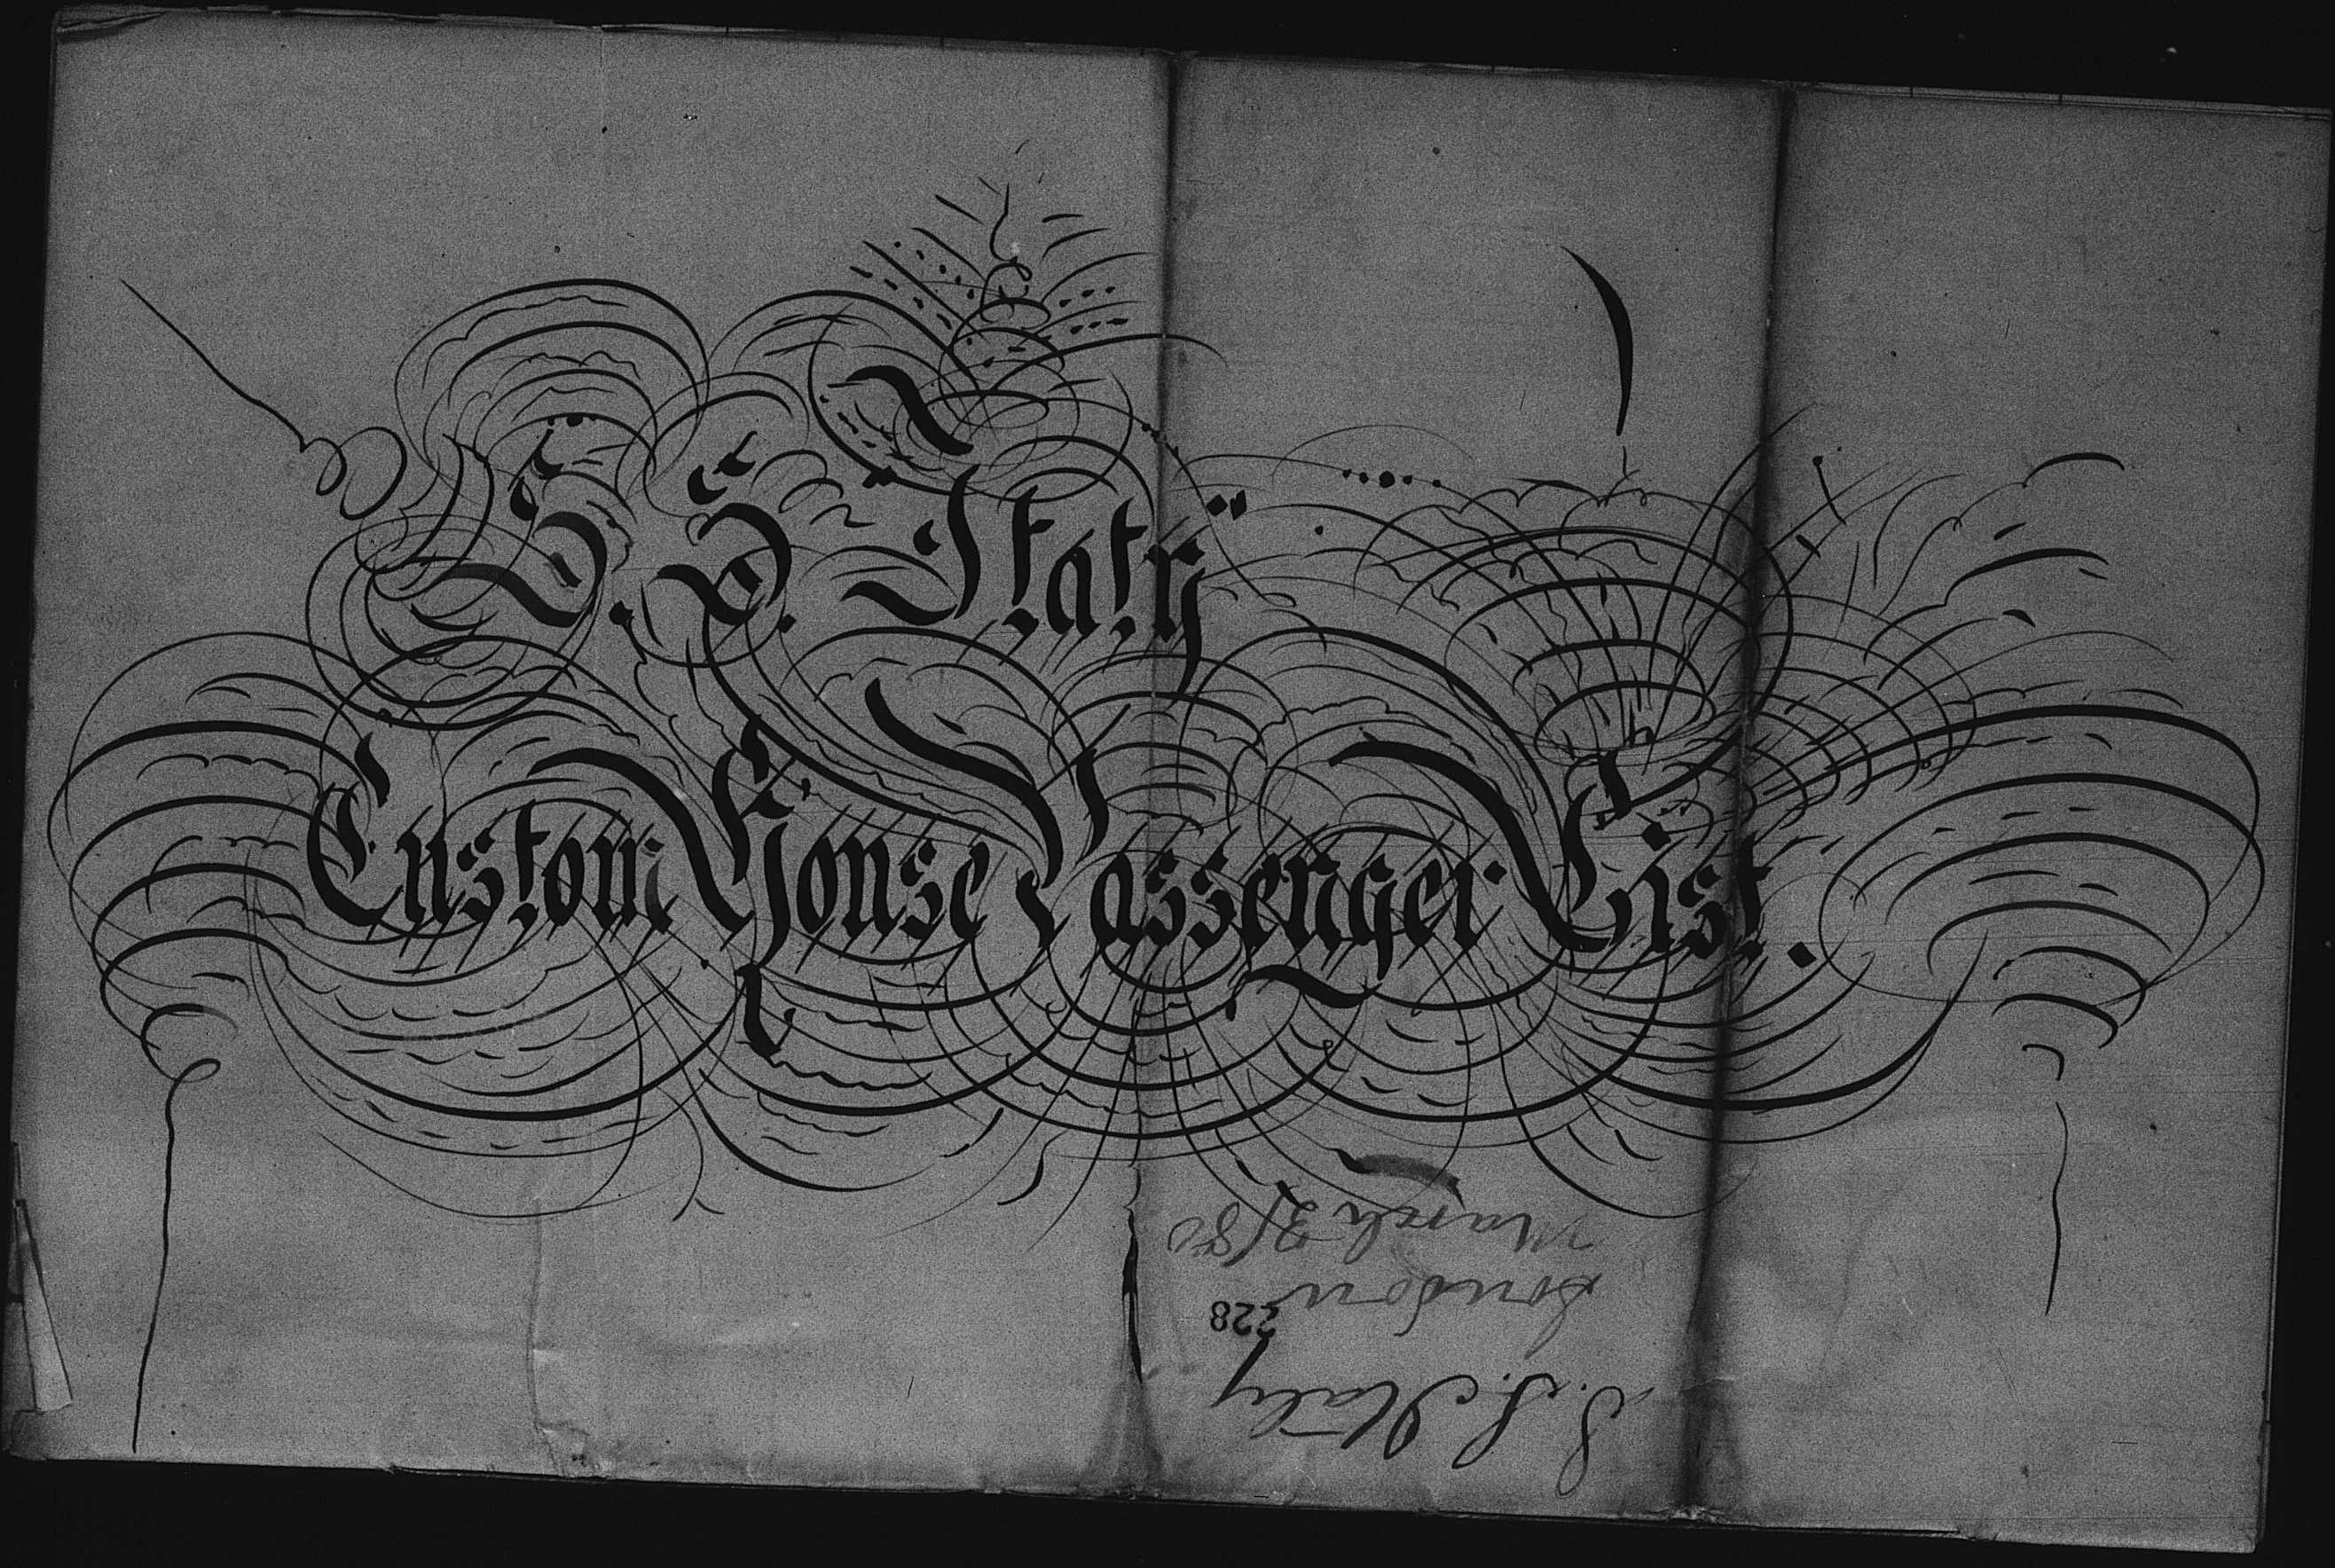 S. S. "Italy"
Custom House Passenger List.
S. S. Italy
228
London
March 3/80